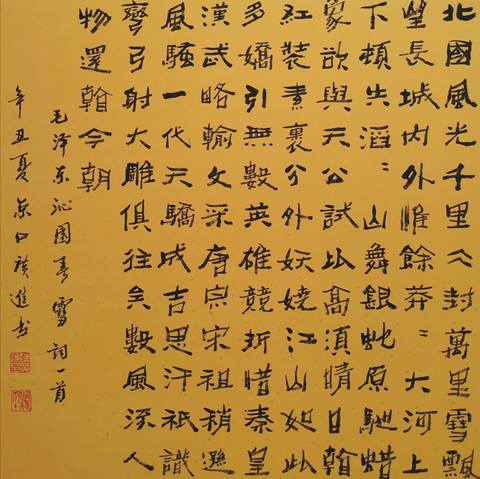 北國風光千里仌封萬里雪飄
望長城内外惟餘莽〻大河上
下頓失滔〻山舞銀虵原馳蜡
象欲與天公試比高須晴日看
紅裝素裹分外妖嬈江山如此
多嬌引無數英雄競折惜秦皇
漢武略輸文采唐宗宋祖稍遜
風騷一代天驕成吉思汗祇識
彎弓射大雕俱往矣數風流人
物還看今朝
毛泽东沁園春雪詞一首
辛丑夏京口進书